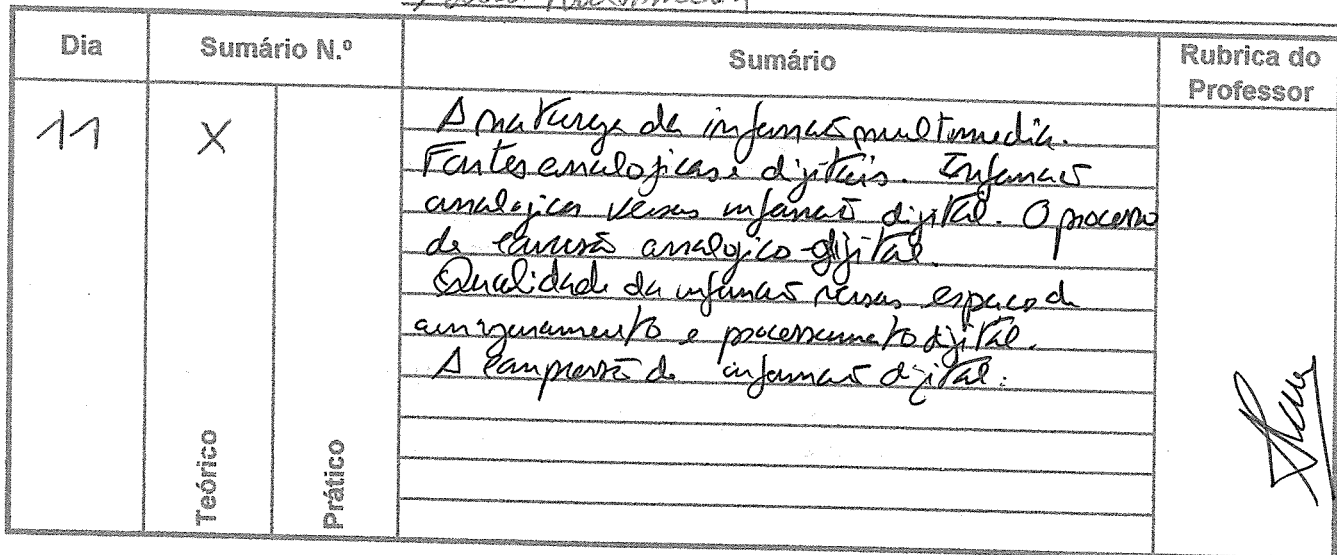 Dia Sumário N.º Sumário Rubrica do Professor
11 X
A natureza da informação multimedia.
Fontes analogicas e digitais. Informação
analogica versus informação digital. O processo
de conversão analogico-digital.
Qualidade da informação versus espaço de
armazenamento e processamento digital.
A compressão de informação digital.
Teórico
Prático